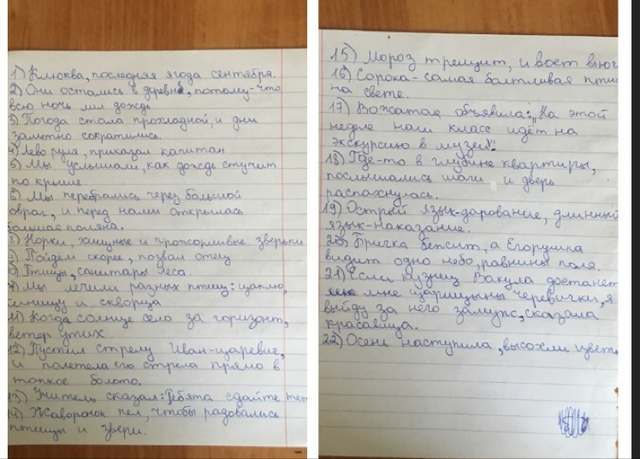 1) Клюква, последняя ягода сентября.
2) Они остались в деревне, потому-что
всю ночь лил дождь
3) Погода стала прохладной, и дни
заметно сократились.
4) Лево руля, приказал капитан
5) Мы услышали, как дождь стучит
по крыше.
6) Мы перебрались через большой
овраг, и перед нами открылась
большая поляна.
7) Норки, хищные и прожорливые зверьки
8) Пойдем скорее, позвал отец
9) Птицы, санитары леса
Мы лечили разных птиц: цаплю,
синицу и скворца
11) Когда солнце село за горизонт,
ветер утих
12) Пустил стрелу Иван-царевич,
и полетела его стрела прямо в
топкое болото.
13) Учитель сказал: Ребята сдайте тет
14) Жаворонок пел, чтобы радовались
птицы и звери.
15) Мороз трещит, и воет вьюг
16) Сорока-самая болтливая птиц
на свете.
17) Вожатая объявила: „На этой
неделе наш класс идёт на
экскурсию в музей".
18) Где-то в глубине квартиры,
послышались шаги и дверь
распахнулась.
19) Острый язык-дарование, длинный
язык-наказание.
20) Бричка бежит, а Егорушка
видит одно небо, равнины поля.
21) Если кузнец Вакула достанет
мне царицыны черевички, я
выйду за него замуж, сказала
красавица.
22) Осень наступила, высохли цветы